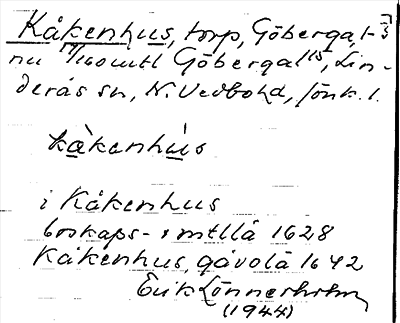 Kåkenhus, torp, Göberga 1-3
nu 7/160 mtl Göberga 1¹⁵, Lin-
derås sn, N. Vedbo hd, Jönk. l.
kàkenhús
i Kåkenhus
boskaps- mtllä 1628
Kåkenhus, gåvolä 1642
Erik Lönnerholm
(1944)